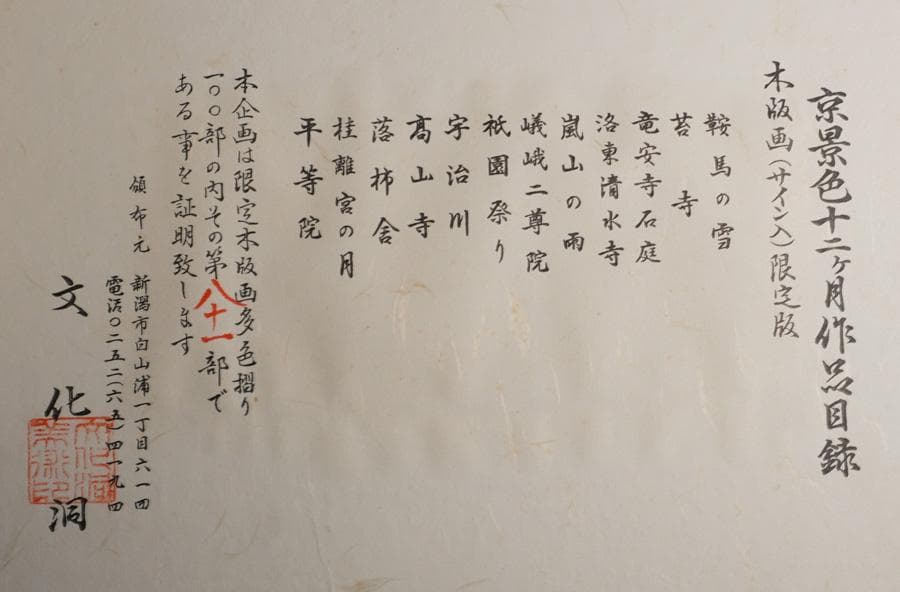 京景色十二ヶ月作品目録
木版画(サイン入)限定版
鞍馬の雪
苔寺
竜安寺石庭
洛東清水寺
嵐山の雨
嵯峨二尊院
祇園祭り
宇治川
高山寺
落柿舎
桂離宮の月
平等院
本企画は限定木版画多色摺り
一〇〇部の内その第八十一部で
ある事を証明致します
頒布元
新潟市白山浦一丁目六一四
電話〇二五二(六五)四一九四
文化洞